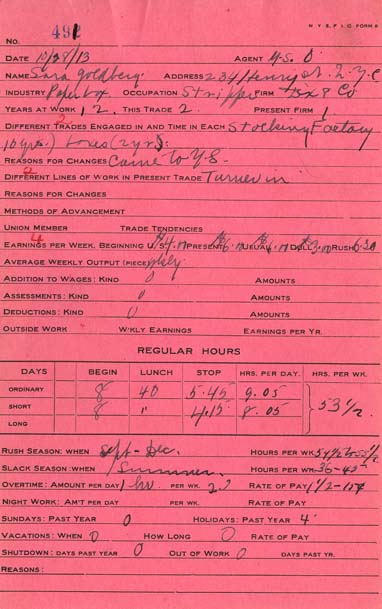 N Y S. F I. C. FORM 6
NO. 491
DATE 10/28/13 AGENT
NAME Sara Goldberg ADDRESS 234 Henry St. N.Y.C
INDUSTRY Paper box OCCUPATION Stripper FIRM B x 8 Co
YEARS AT WORK 12. THIS TRADE 2. PRESENT FIRM 1
2
DIFFERENT TRADES ENGAGED IN AND TIME IN EACH Stocking Factory
10 yrs.) Boxes (2 yrs):
REASONS FOR CHANGES Came to U.S.
2
DIFFERENT LINES OF WORK IN PRESENT TRADE Turner in
REASONS FOR CHANGES
METHODS OF ADVANCEMENT
UNION MEMBER TRADE TENDENCIES
4
EARNINGS PER WEEK. BEGINNING U.S. PRESENT USUAL DULL RUSH 6.30
AVERAGE WEEKLY OUTPUT (PIECE) wkly
ADDITION TO WAGES: KIND 0 AMOUNTS
ASSESSMENTS: KIND 0 AMOUNTS
DEDUCTIONS: KIND 0 AMOUNTS
OUTSIDE WORK W'KLY EARNINGS EARNINGS PER YR.
REGULAR HOURS
DAYS BEGIN LUNCH STOP HRS. PER DAY. HRS. PER WK.
ORDINARY 8 40 5.45 9.05
SHORT 8 " 4.45 8.05 } 53 1/2.
LONG
RUSH SEASON: WHEN Sept-Dec. HOURS PER WK.
SLACK SEASON: WHEN Summer. HOURS PER WK. 36-45
OVERTIME: AMOUNT PER DAY 1 hr. PER WK. 2? RATE OF PAY
NIGHT WORK: AM'T PER DAY PER WK. RATE OF PAY
SUNDAYS: PAST YEAR 0 HOLIDAYS: PAST YEAR 4
VACATIONS: WHEN 0 HOW LONG 0 RATE OF PAY
SHUTDOWN: DAYS PAST YEAR 0 OUT OF WORK 0 DAYS PAST YR.
REASONS: